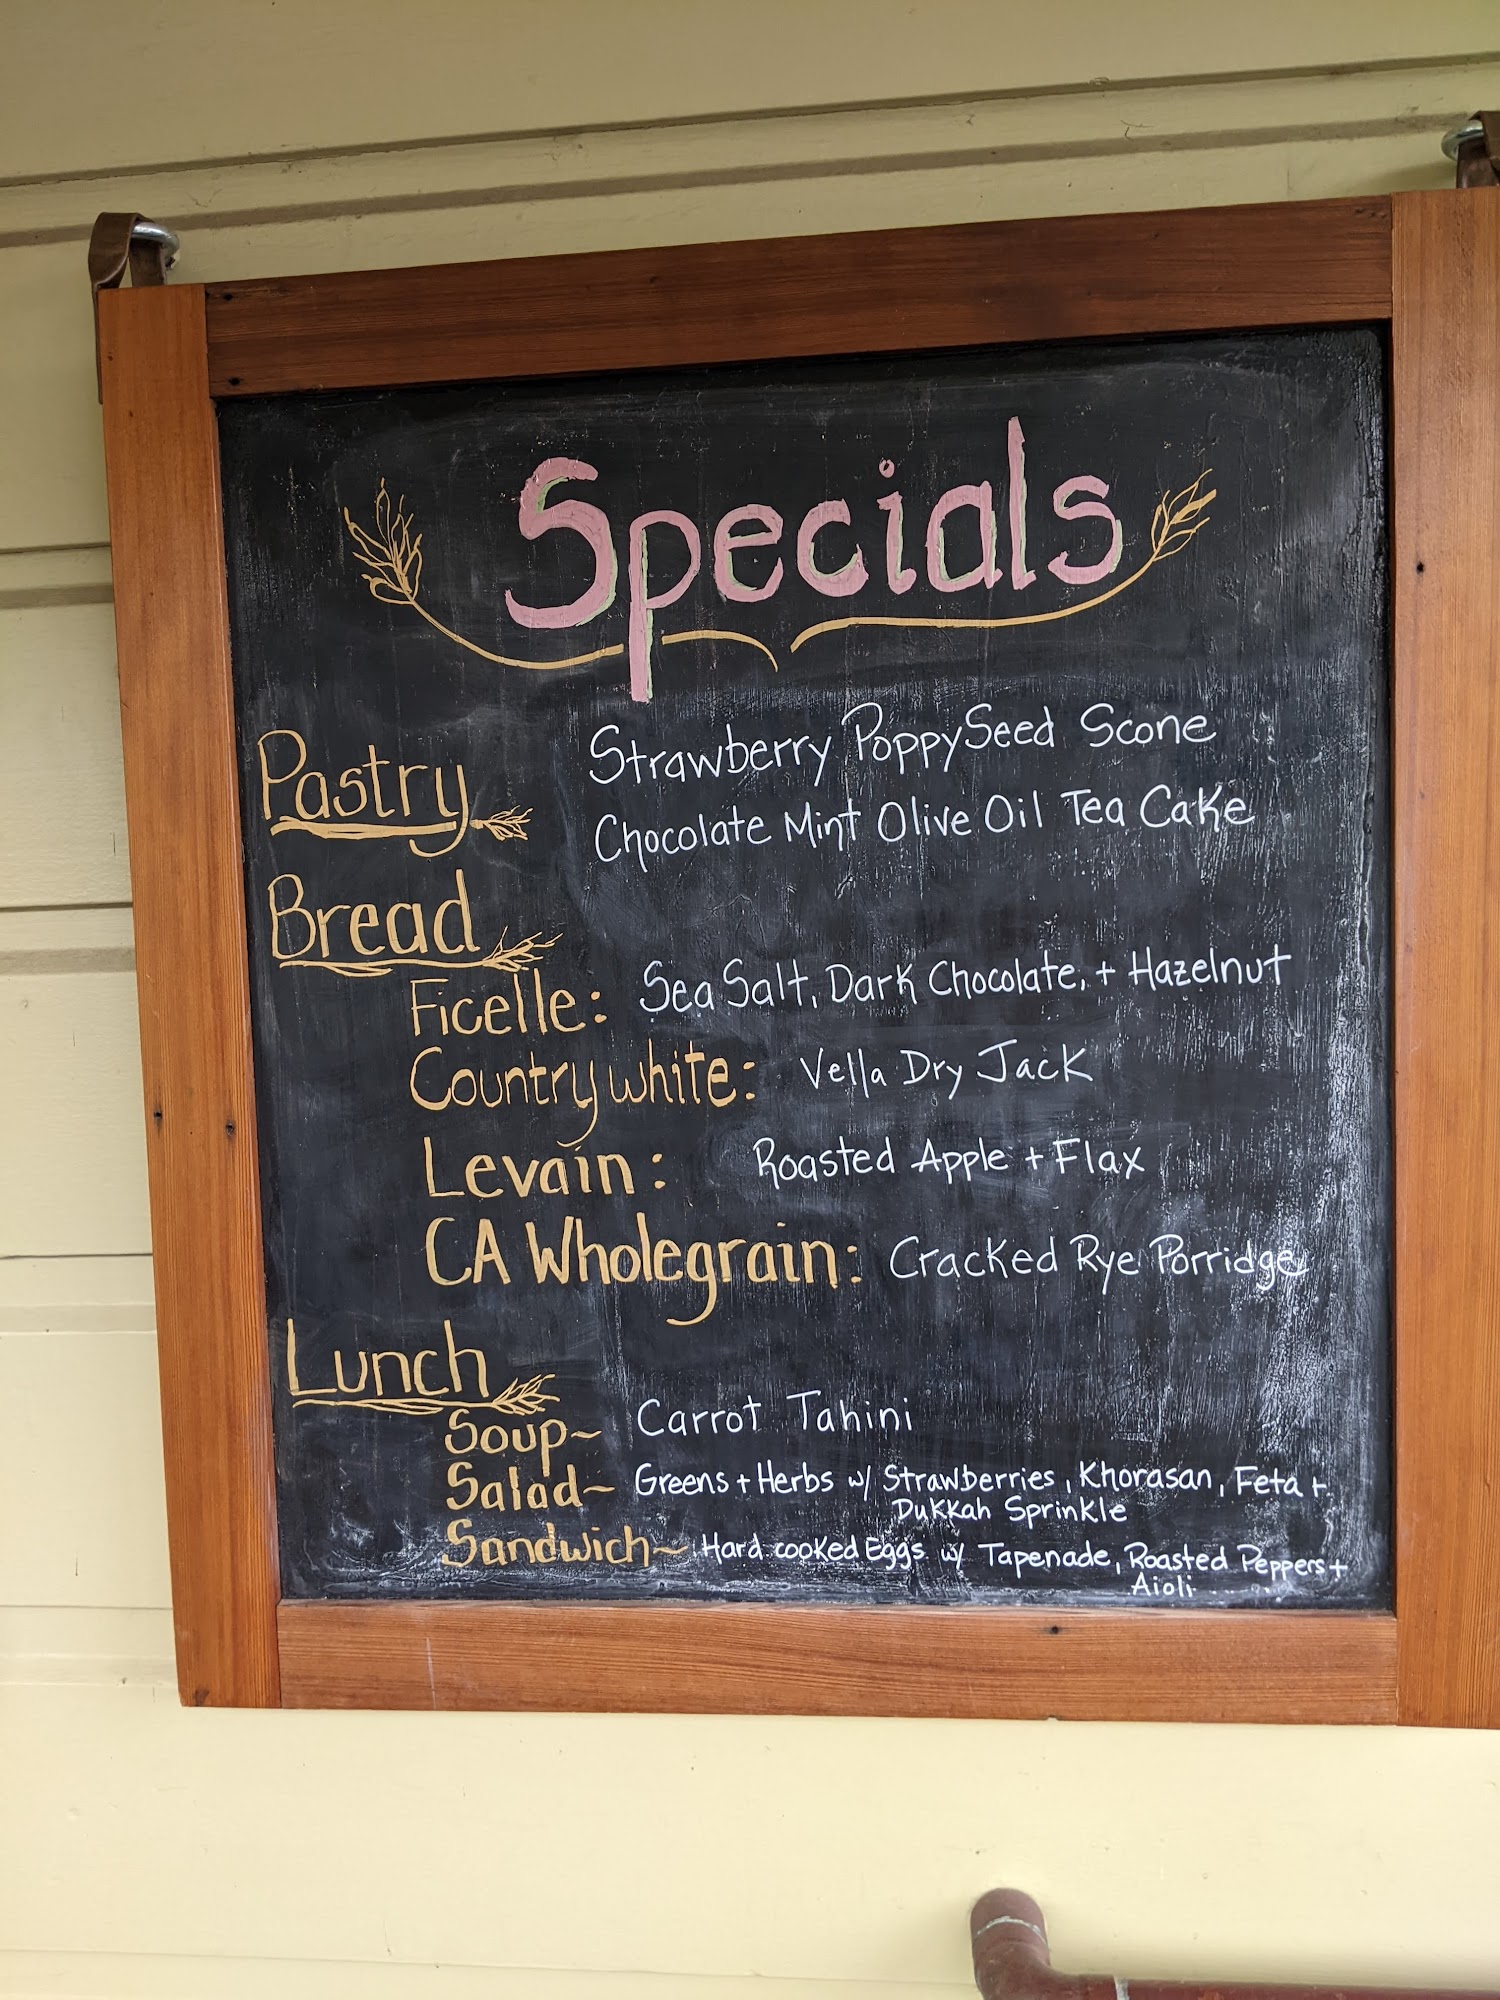 Specials
Pastry
Strawberry PoppySeed Scone
Chocolate Mint Olive Oil Tea Cake
Bread
Ficelle: Sea Salt, Dark Chocolate, + Hazelnut
Country white: Vella Dry Jack
Levain: Roasted Apple + Flax
CA Wholegrain: Cracked Rye Porridge
Lunch
Soup~ Carrot Tahini
Salad~ Greens + Herbs w/ Strawberries, Khorasan, Feta +
Dukkah Sprinkle
Sandwich~ Hard cooked Eggs w/ Tapenade, Roasted Peppers +
Aioli